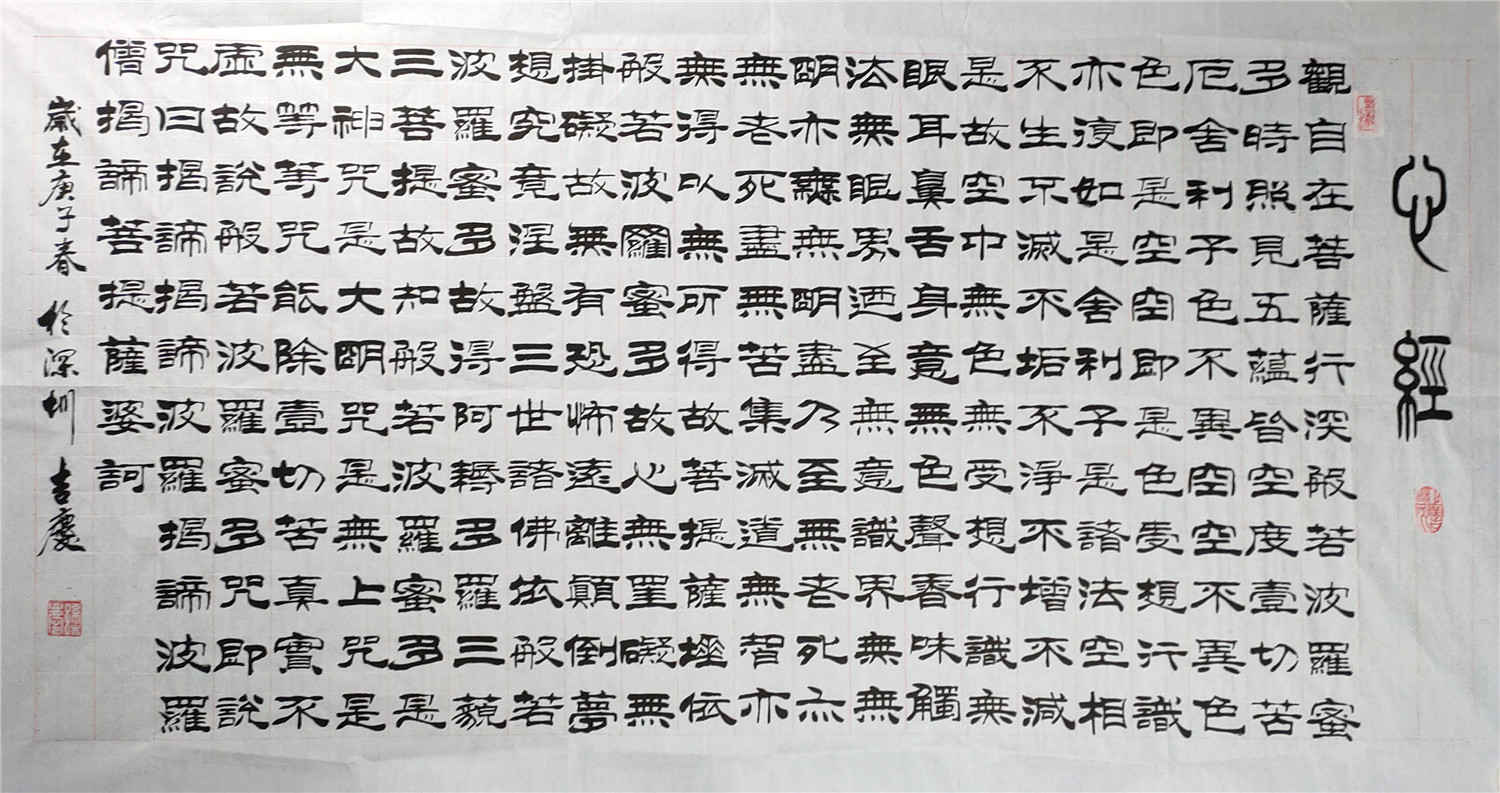 心經
觀自在菩薩行深般若波羅蜜
多時照見五蘊皆空度壹切苦
厄舍利子色不異空空不異色
色即是空空即是色受想行識
亦復如是舍利子是諸法空相
不生不滅不垢不淨不增不減
是故空中無色無受想行識無
眼耳鼻舌身意無色聲香味觸
法無眼界迺至無意識界無無
明亦無無明盡乃至無老死亦
無老死盡無苦集滅道無智亦
無得以無所得故菩提薩埵依
般若波羅蜜多故心無罣礙無
掛礙故無有恐怖遠離顛倒夢
想究竟涅盤三世諸佛依般若
波羅蜜多故得阿耨多羅三藐
三菩提故知般若波羅蜜多是
大神咒是大明咒是無上咒是
無等等咒能除壹切苦真實不
虛故說般若波羅蜜多咒即說
咒曰揭諦揭諦波羅揭諦波羅
僧揭諦菩提薩婆訶
歲在庚子春於深圳 吉慶